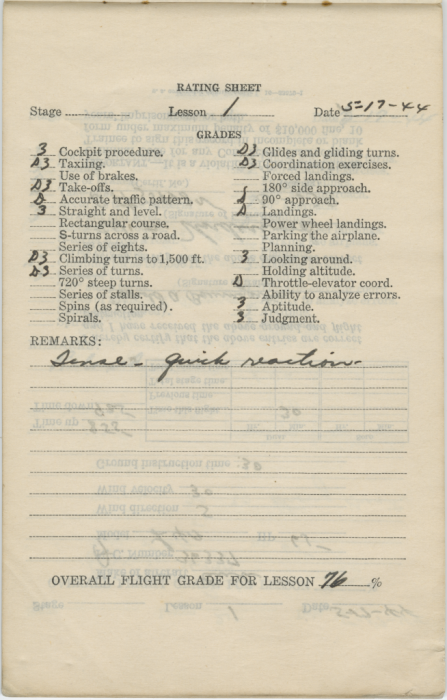 RATING SHEET
Stage Lesson 1 Date 5-17-44
GRADES
3 Cockpit procedure.
D3 Taxiing.
Use of brakes.
D3 Take-offs.
D Accurate traffic pattern.
3 Straight and level.
Rectangular course.
S-turns across a road.
Series of eights.
D3 Climbing turns to 1,500 ft.
D3 Series of turns.
720° steep turns.
Series of stalls.
Spins (as required).
Spirals.
D3 Glides and gliding turns.
D3 Coordination exercises.
Forced landings.
180° side approach.
90° approach.
D Landings.
Power wheel landings.
Parking the airplane.
Planning.
3 Looking around.
Holding altitude.
D Throttle-elevator coord.
Ability to analyze errors.
3 Aptitude.
3 Judgment.
REMARKS:
Tense - quick reaction-
OVERALL FLIGHT GRADE FOR LESSON 76 %